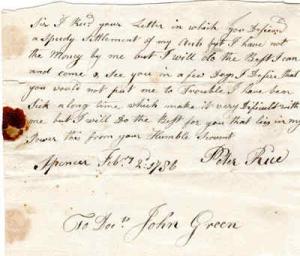 Sir I Recd your Letter in which you Desired
a Speedy Settlement of my Acct but I have not
the Money by me but I will do the Best I can
and come & See you in a few Days I Desire that
you would not put me to Trouble I have been
Sick along time which make it very Difficult with
me but I will Do the Best for you that lies in my
Power this from your Humble Servant
Spencer Febry 2: 1786 Peter Rice
To Docr John Green